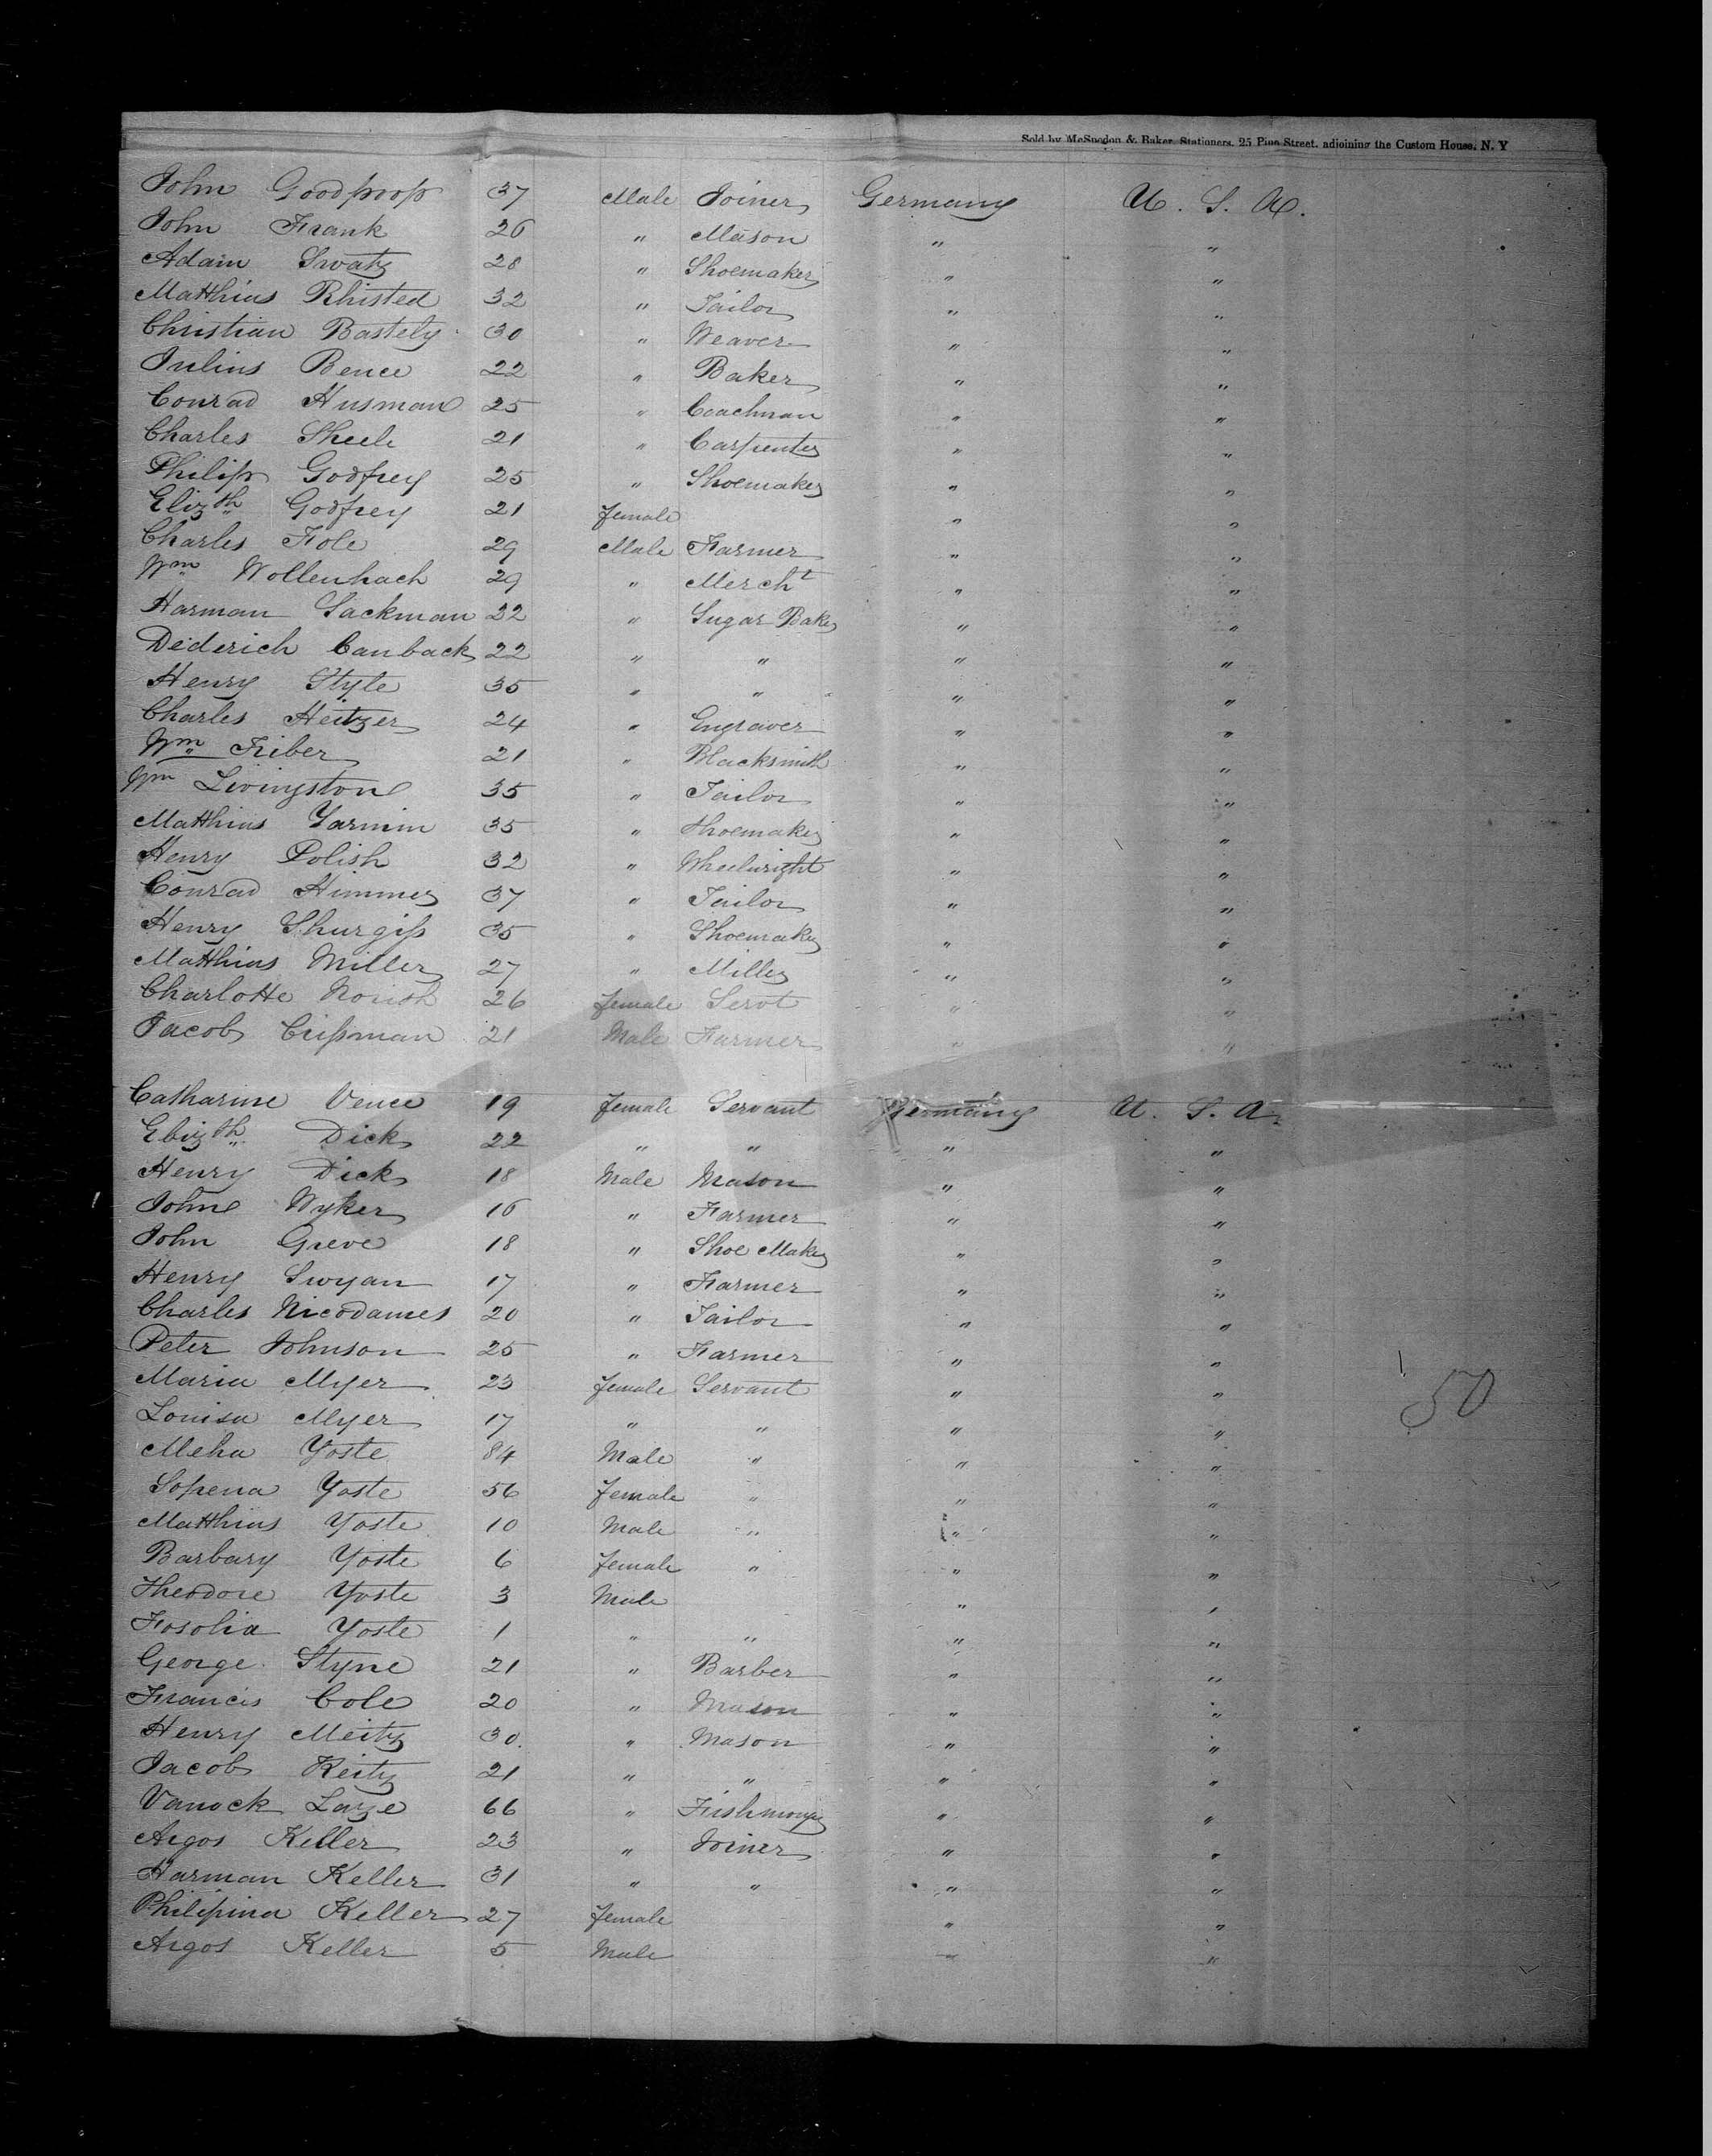 Sold by McSpedon & Baker, Stationers, 25 Pine Street, adjoining the Custom House, N. Y
John Goodproof 37 Male Joiner Germany U. S. A.
John Frank 26 " Mason " "
Adam Swatz 28 " Shoemaker " "
Matthias Rhisted 32 " Tailor " "
Christian Bastely 30 " Weaver " "
Julius Bence 22 " Baker " "
Conrad Husman 25 " Coachman " "
Charles Sheele 21 " Carpenter " "
Philip Godfrey 25 " Shoemaker " "
Elizth Godfrey 21 female " "
Charles Fole 29 Male Farmer " "
Wm Wollenhach 29 " Mercht " "
Harman Sackman 32 " Sugar Baker " "
Dederich Canback 22 " " " "
Henry Style 35 " " " "
Charles Heitzer 24 " Engraver " "
Wm Fiber 21 " Blacksmith " "
Wm Livingston 35 " Tailor " "
Matthias Yarmin 35 " Shoemaker " "
Henry Polish 32 " Wheelwright " "
Conrad Himmer 37 " Tailor " "
Henry Shurgiss 35 " Shoemaker " "
Matthias Miller 27 " Miller " "
Charlotte Norish 26 female Servt " "
Jacob Crissman 21 Male Farmer " "
Catharine Vence 19 female Servant Germany U. S. A.
Elizth Dick 22 " " " "
Henry Dick 18 Male Mason " "
John Wyker 16 " Farmer " "
John Greve 18 " Shoe Maker " "
Henry Swyan 17 " Farmer " "
Charles Nicodames 20 " Tailor " "
Peter Johnson 25 " Farmer " "
Maria Myer 23 female Servant " "
50
Louisa Myer 17 " " " "
Meha Yoste 84 Male " " "
Sopena Yoste 56 female " " "
Matthias Yoste 10 Male " " "
Barbary Yoste 6 female " " "
Theodore Yoste 3 Male " "
Fosolia Yoste 1 " " " "
George Styne 21 " Barber " "
Francis Cole 20 " Mason " "
Henry Meitz 30 " Mason " "
Jacob Reitz 21 " " " "
Vanock Laize 66 " Fishmonger " "
Argos Keller 23 " Joiner " "
Harman Keller 31 " " " "
Philipina Keller 27 female " "
Argos Keller 5 Male " "